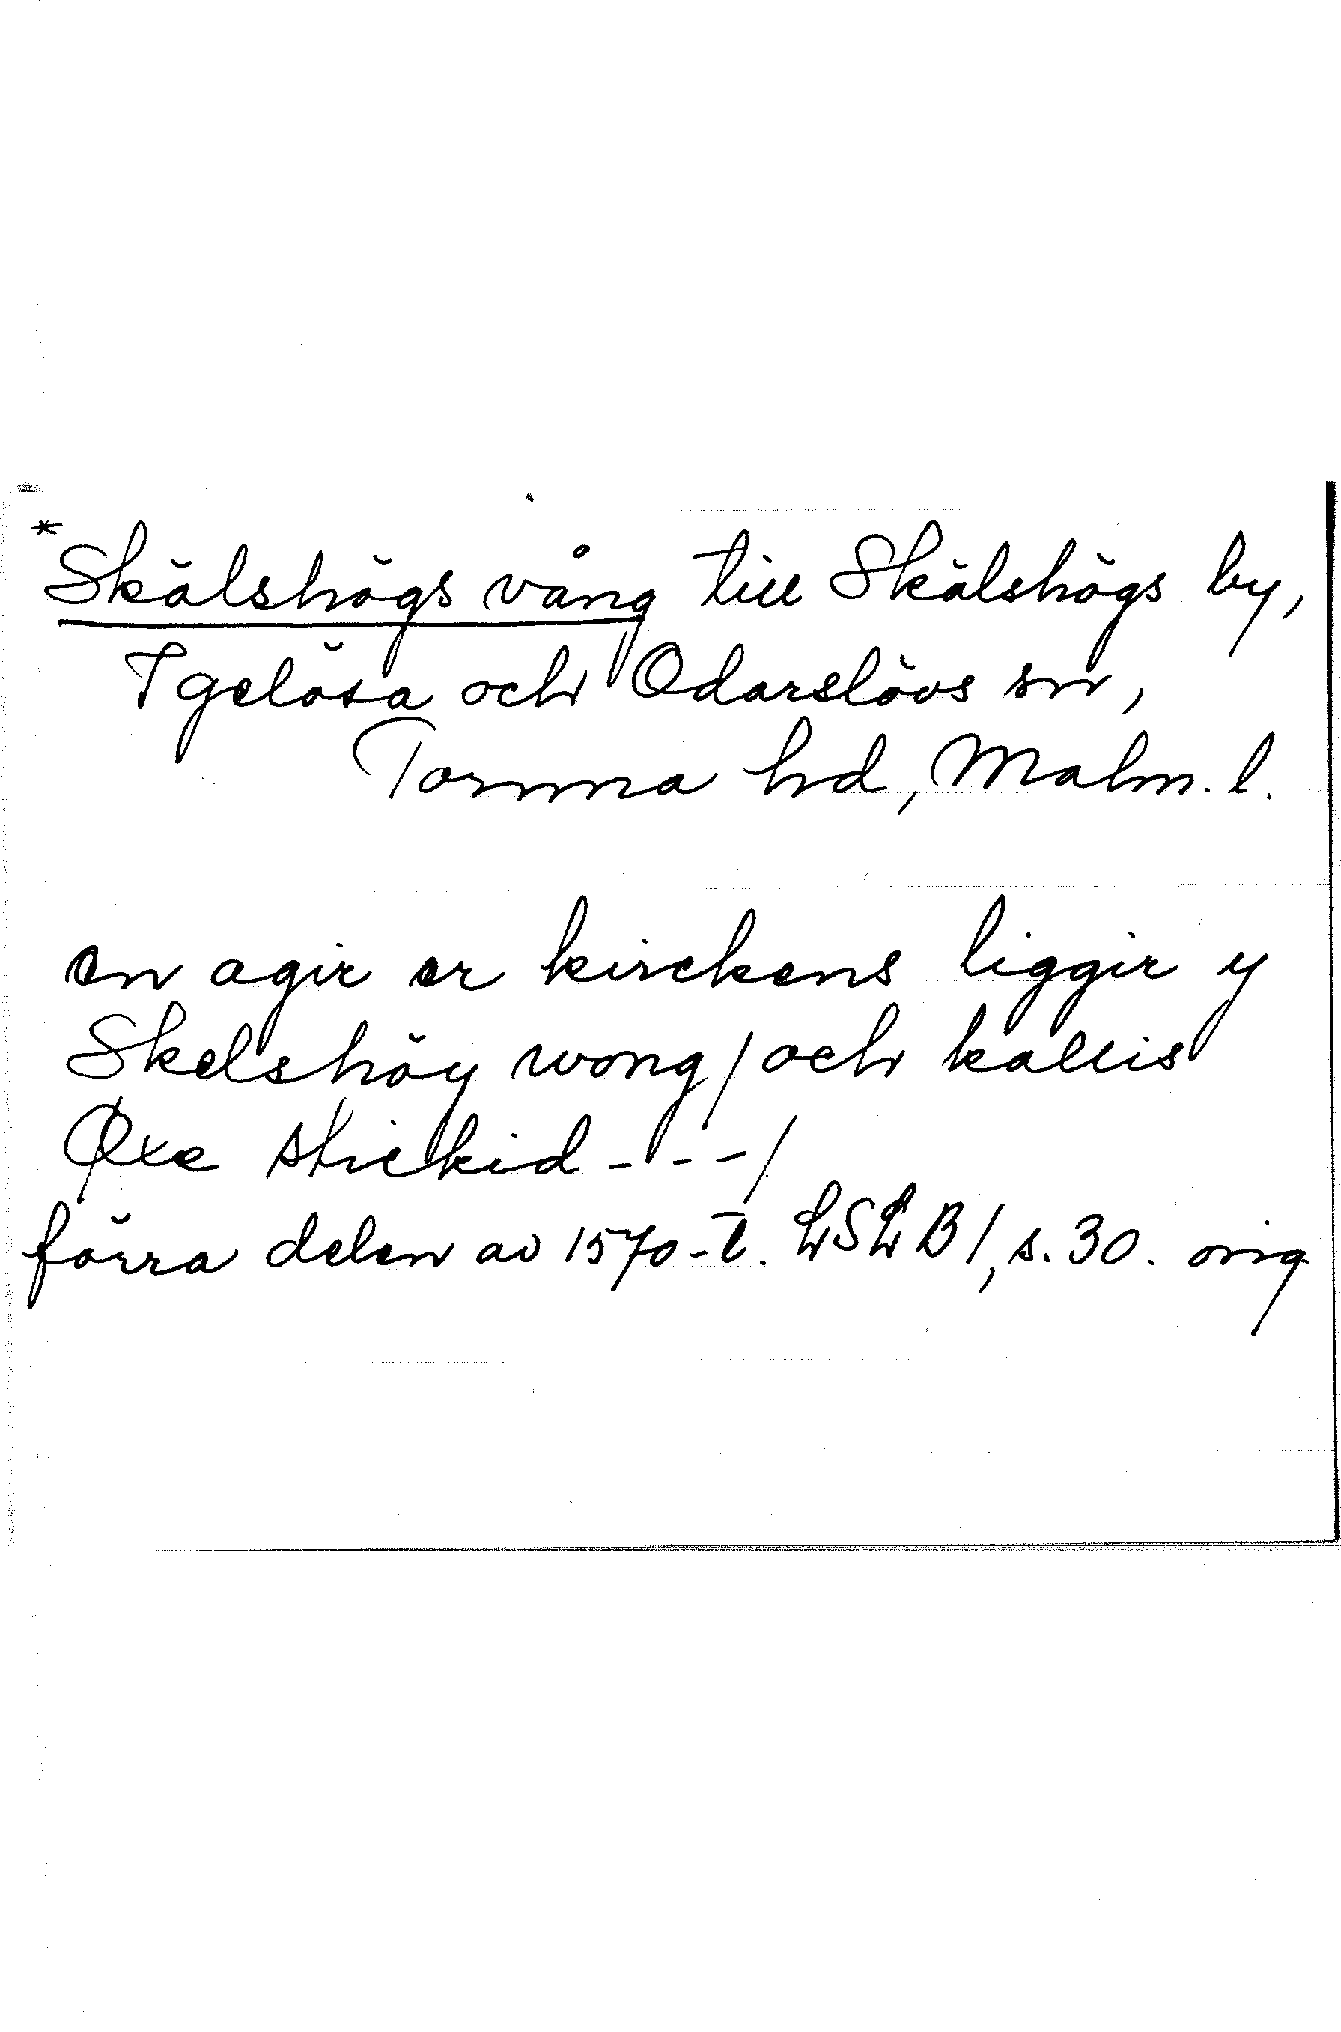 *Skälshögs vång till Skälshögs by,
Igelösa och Odarslövs sn,
Torna hd, Malm. l.
en agir er kirckens liggir y
Skelshöy wong / och kallis
Øxe stickid - - - /
förra delen av 1570-t. LSLB 1, s. 30. orig